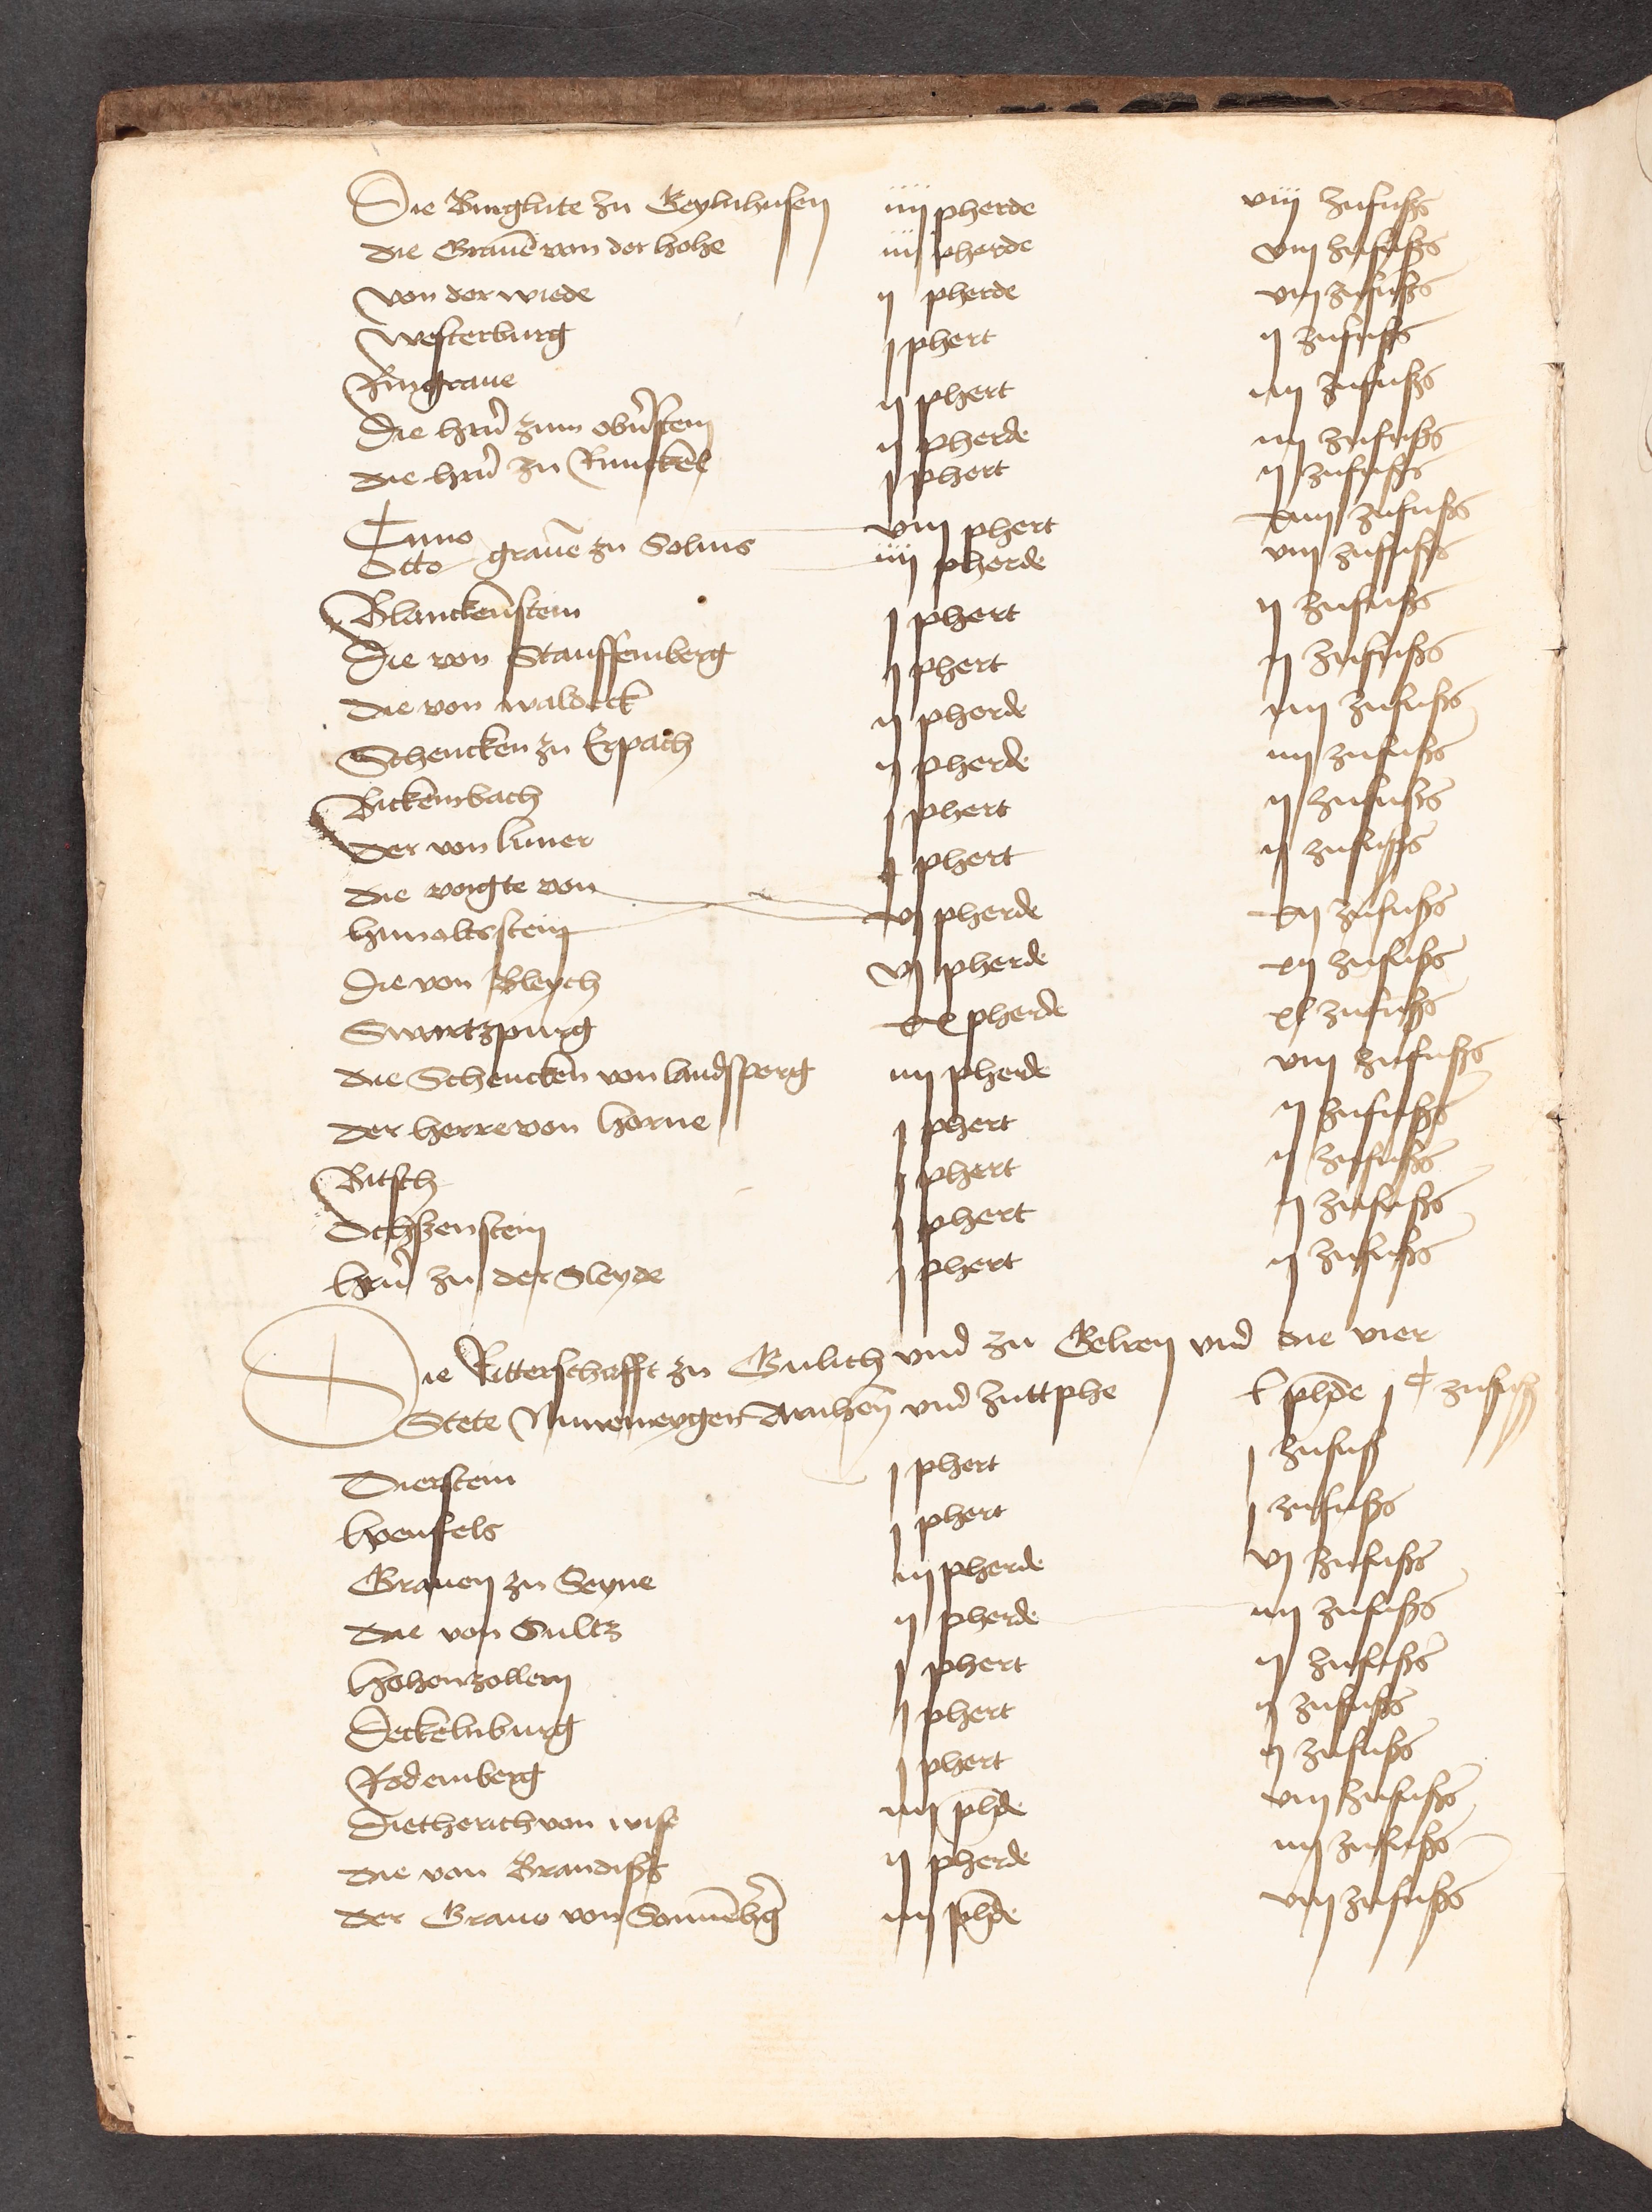 Die Burglute zu Geylnhusen iiij pherde viij zufußs
die Grauē von der hohe iiij pherde viij zufußs
von der wiede ij pherde viij zufußs
Westerburg j phert ij zufußs
Ringraue ij phert iiij zufußs
Die hrn̄ zum obn̄stein ij pherde iiij zufußs
die hrn̄ zu Runckel j phert ij zufußs
Cuno viij phert xviij zufußs
Otto grauē zu Solms iiij pherde viij zufußs
Blanckenstein j phert ij zufußs
Die von Stauffemberg j phert ij zufußs
die von waldeck ij pherde iiij zufußs
Schencken zu Erpach ij pherde iiij zufußs
Bickembach j phert ij zufußs
der von limer j phert ij zufußs
die voygte von
hunoltsstein vj pherde xij zufußs
Die von Bleych vj pherde xij zufußs
Swartzpurg xx pherde xl zufußs
die Schencken von landsperg iiij pherde viij zufußs
der herre von horne j phert ij zufußs
Bitsch j phert ij zufußs
Ochßenstein j phert ij zufußs
hrn̄ zu der Sleyde j phert ij zufußs
Die Ritterschafft zu Gulich vnd zu Gelren vnd die vier
Stete Nuwemeygen Arnhen vnd zuttphe L phde j C zufuß
Dierstein j phert j zufuß
heenfels j phert j zufußs
Grauen zu Seyne iij pherde vj zufußs
die von Sultz ij pherde iiij zufußs
hohenzollern j phert ij zufußs
Deckelnburg j phert ij zufußs
Rodemberg j phert ij zufußs
Dietherich von wise iiij phde viij zufußs
die von Brandißs ij pherde iiij zufußs
der Graue von Sonnēbg iiij phde viij zufußs